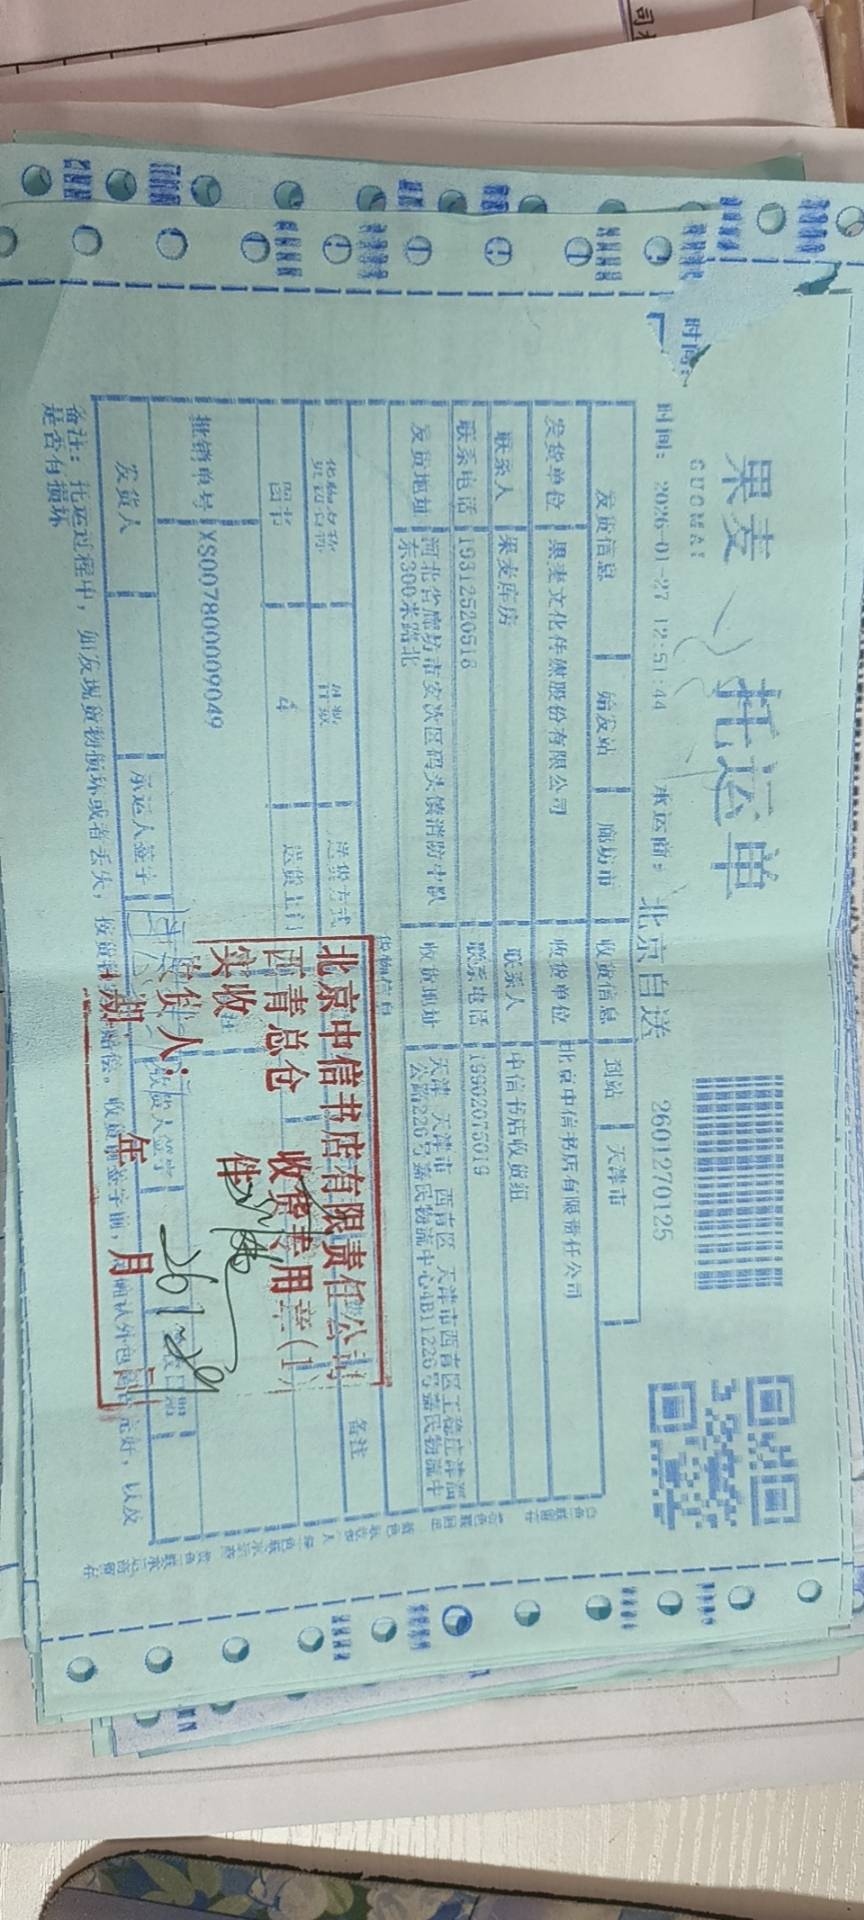 果麦 托运单
GUOMAI
时间: 2026-01-27 12:51:44 承运商: 北京自送 2601270125
发货信息 始发站 廊坊市 收货信息 到站 天津市
发货单位 果麦文化传媒股份有限公司 收货单位 北京中信书店有限责任公司
联系人 果麦库房 联系人 中信书店收货组
联系电话 19312520518 联系电话 19902075019
发货地址 河北省廊坊市安次区码头镇消防中队东300米路北 收货地址 天津 天津市 西青区 天津市西青区王稳庄津淄公路226号嘉民物流中心4B11226号嘉民物流中
货物信息
货物名称 件数 送货方式 备注
图书 4 送货上门
批销单号 XS007800009049
发货人 承运人签字 收货人签字
备注: 托运过程中, 如发现货物损坏或者丢失, 按货物 赔偿。收货前签字前, 确认外包 完好, 以及是否有损坏
北京中信书店有限责任公司
西青总仓 收货专用章(1)
实收 件
收货人:
日期: 年 月 日
26 1-29
时间: